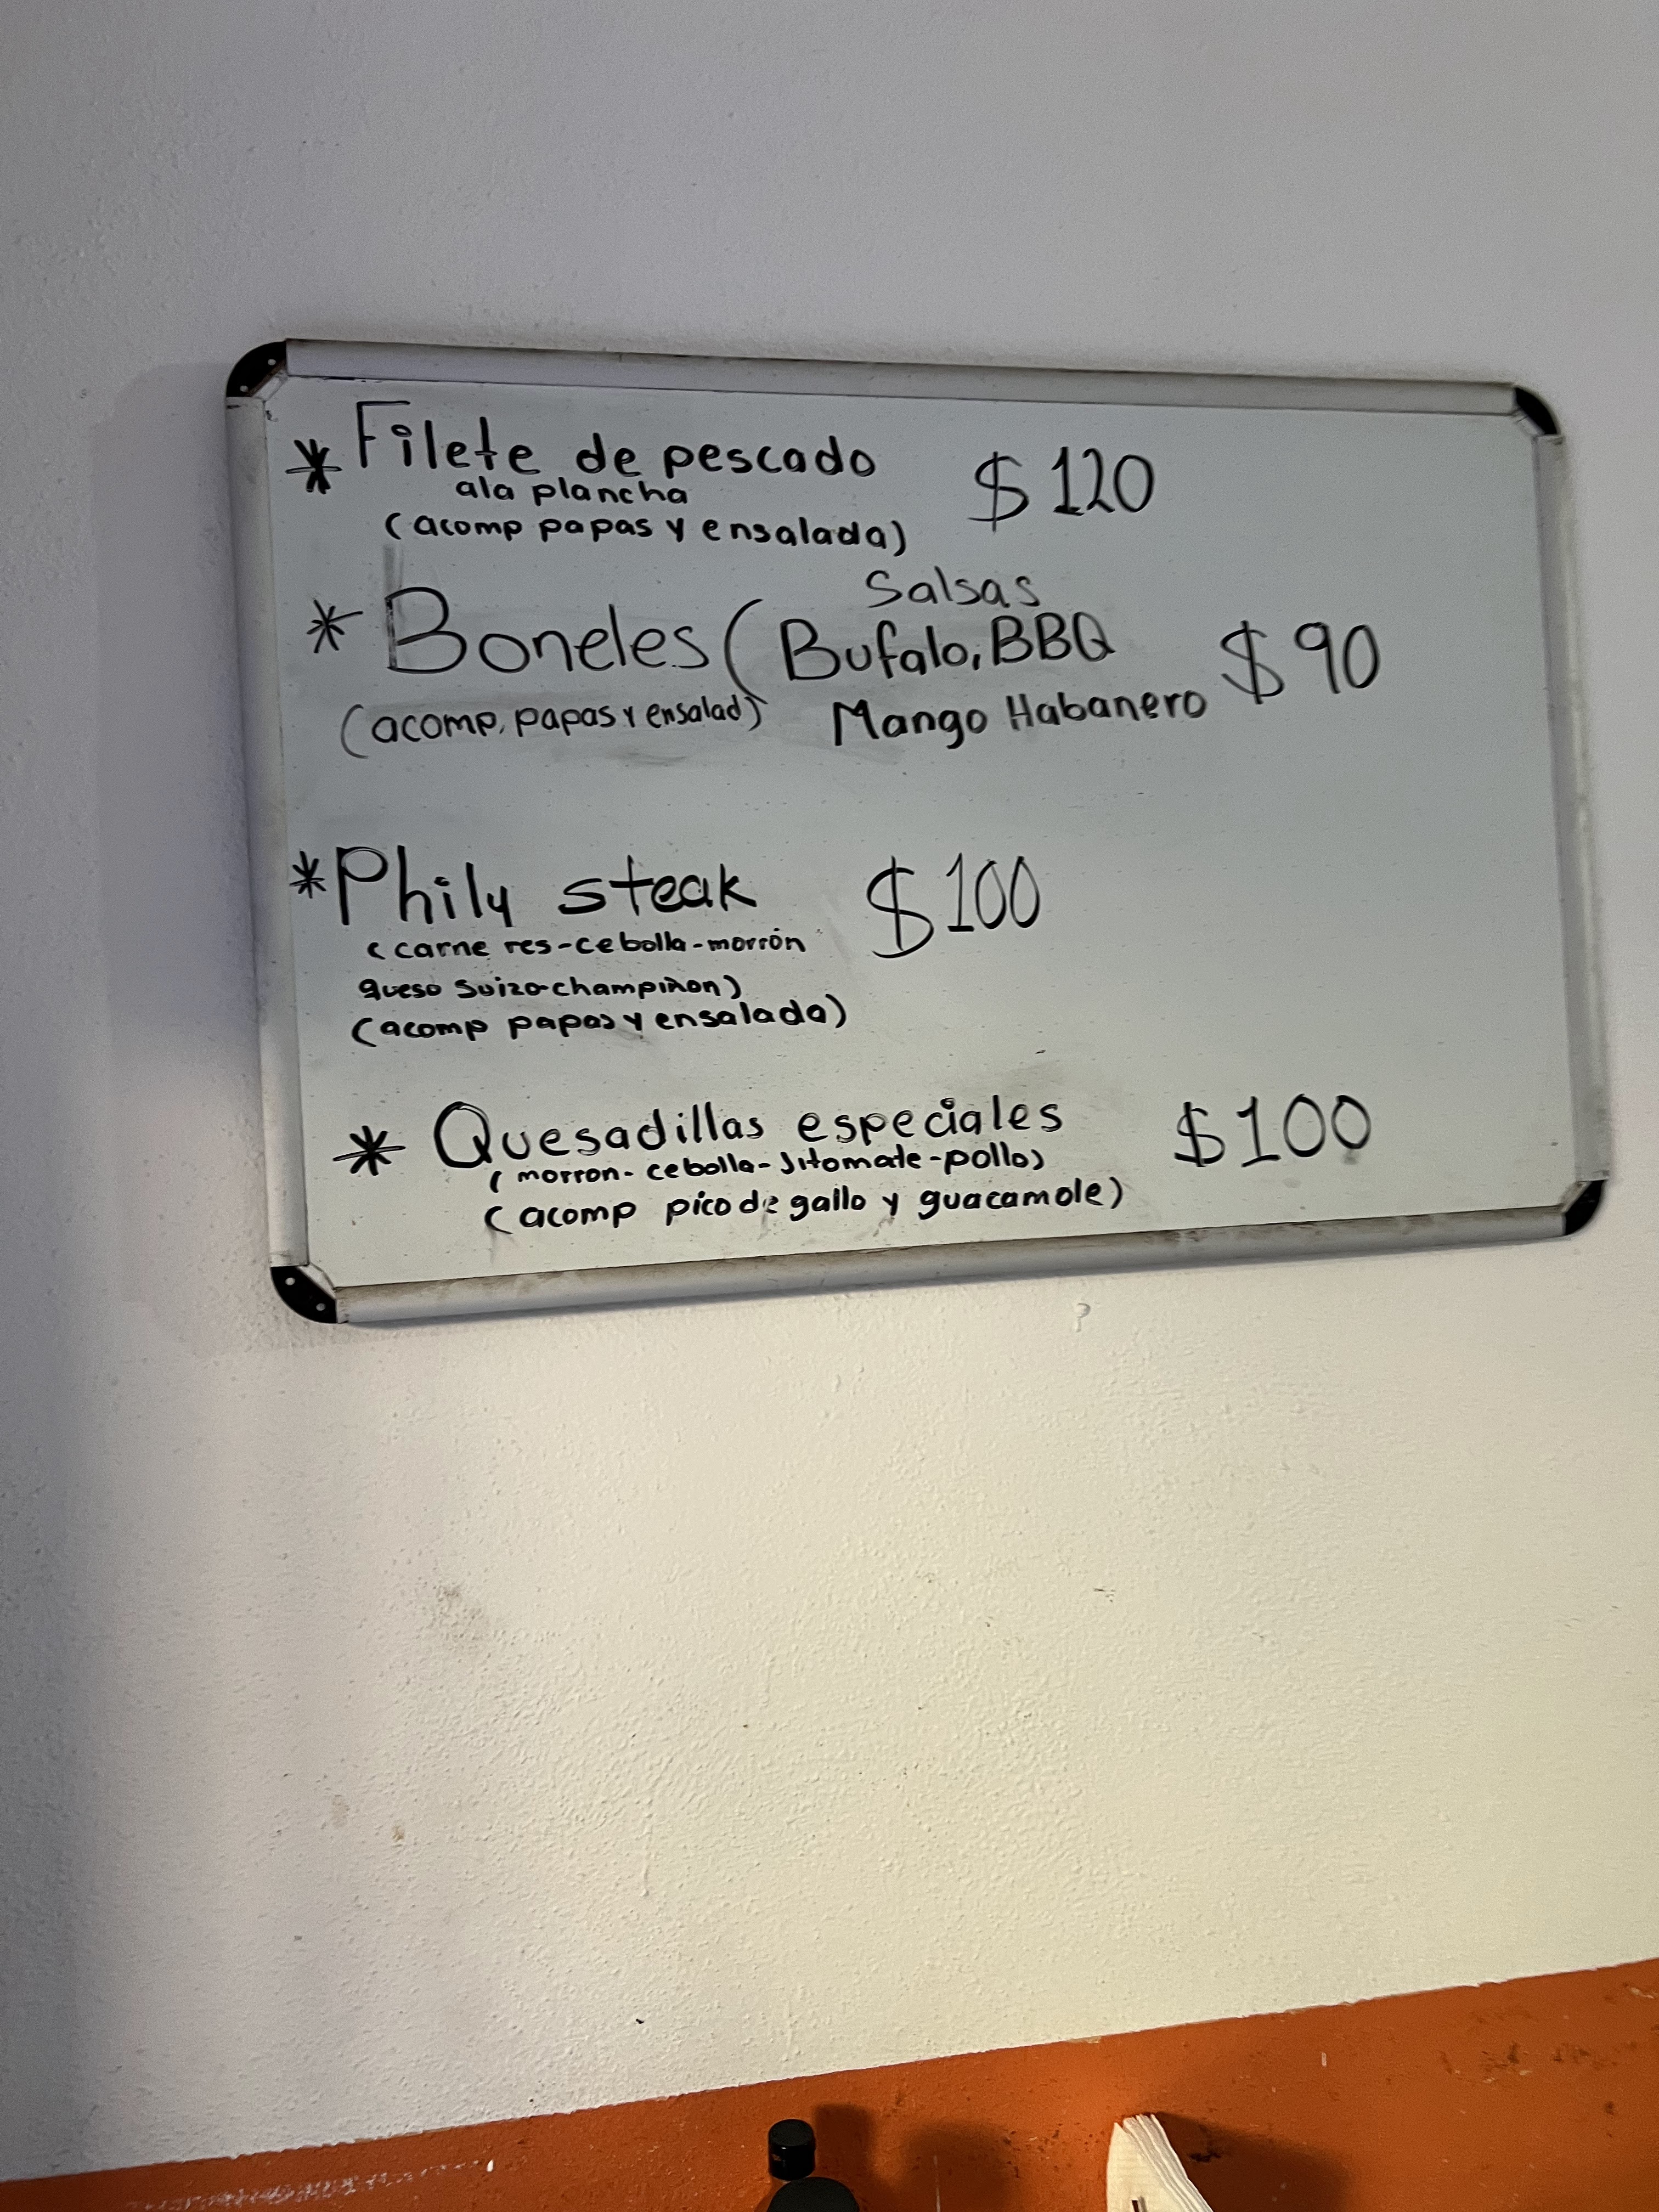 * Filete de pescado $120
ala plancha
(acomp papas y ensalada)
Salsas
* Boneles ( Bufalo, BBQ $90
(acomp, papas y ensalad) Mango Habanero
* Phily steak $100
(carne res-cebolla-morrón
queso suizo-champiñon)
(acomp papas y ensalada)
* Quesadillas especiales $100
(morron-cebolla-Jitomate-pollo)
(acomp pico de gallo y guacamole)